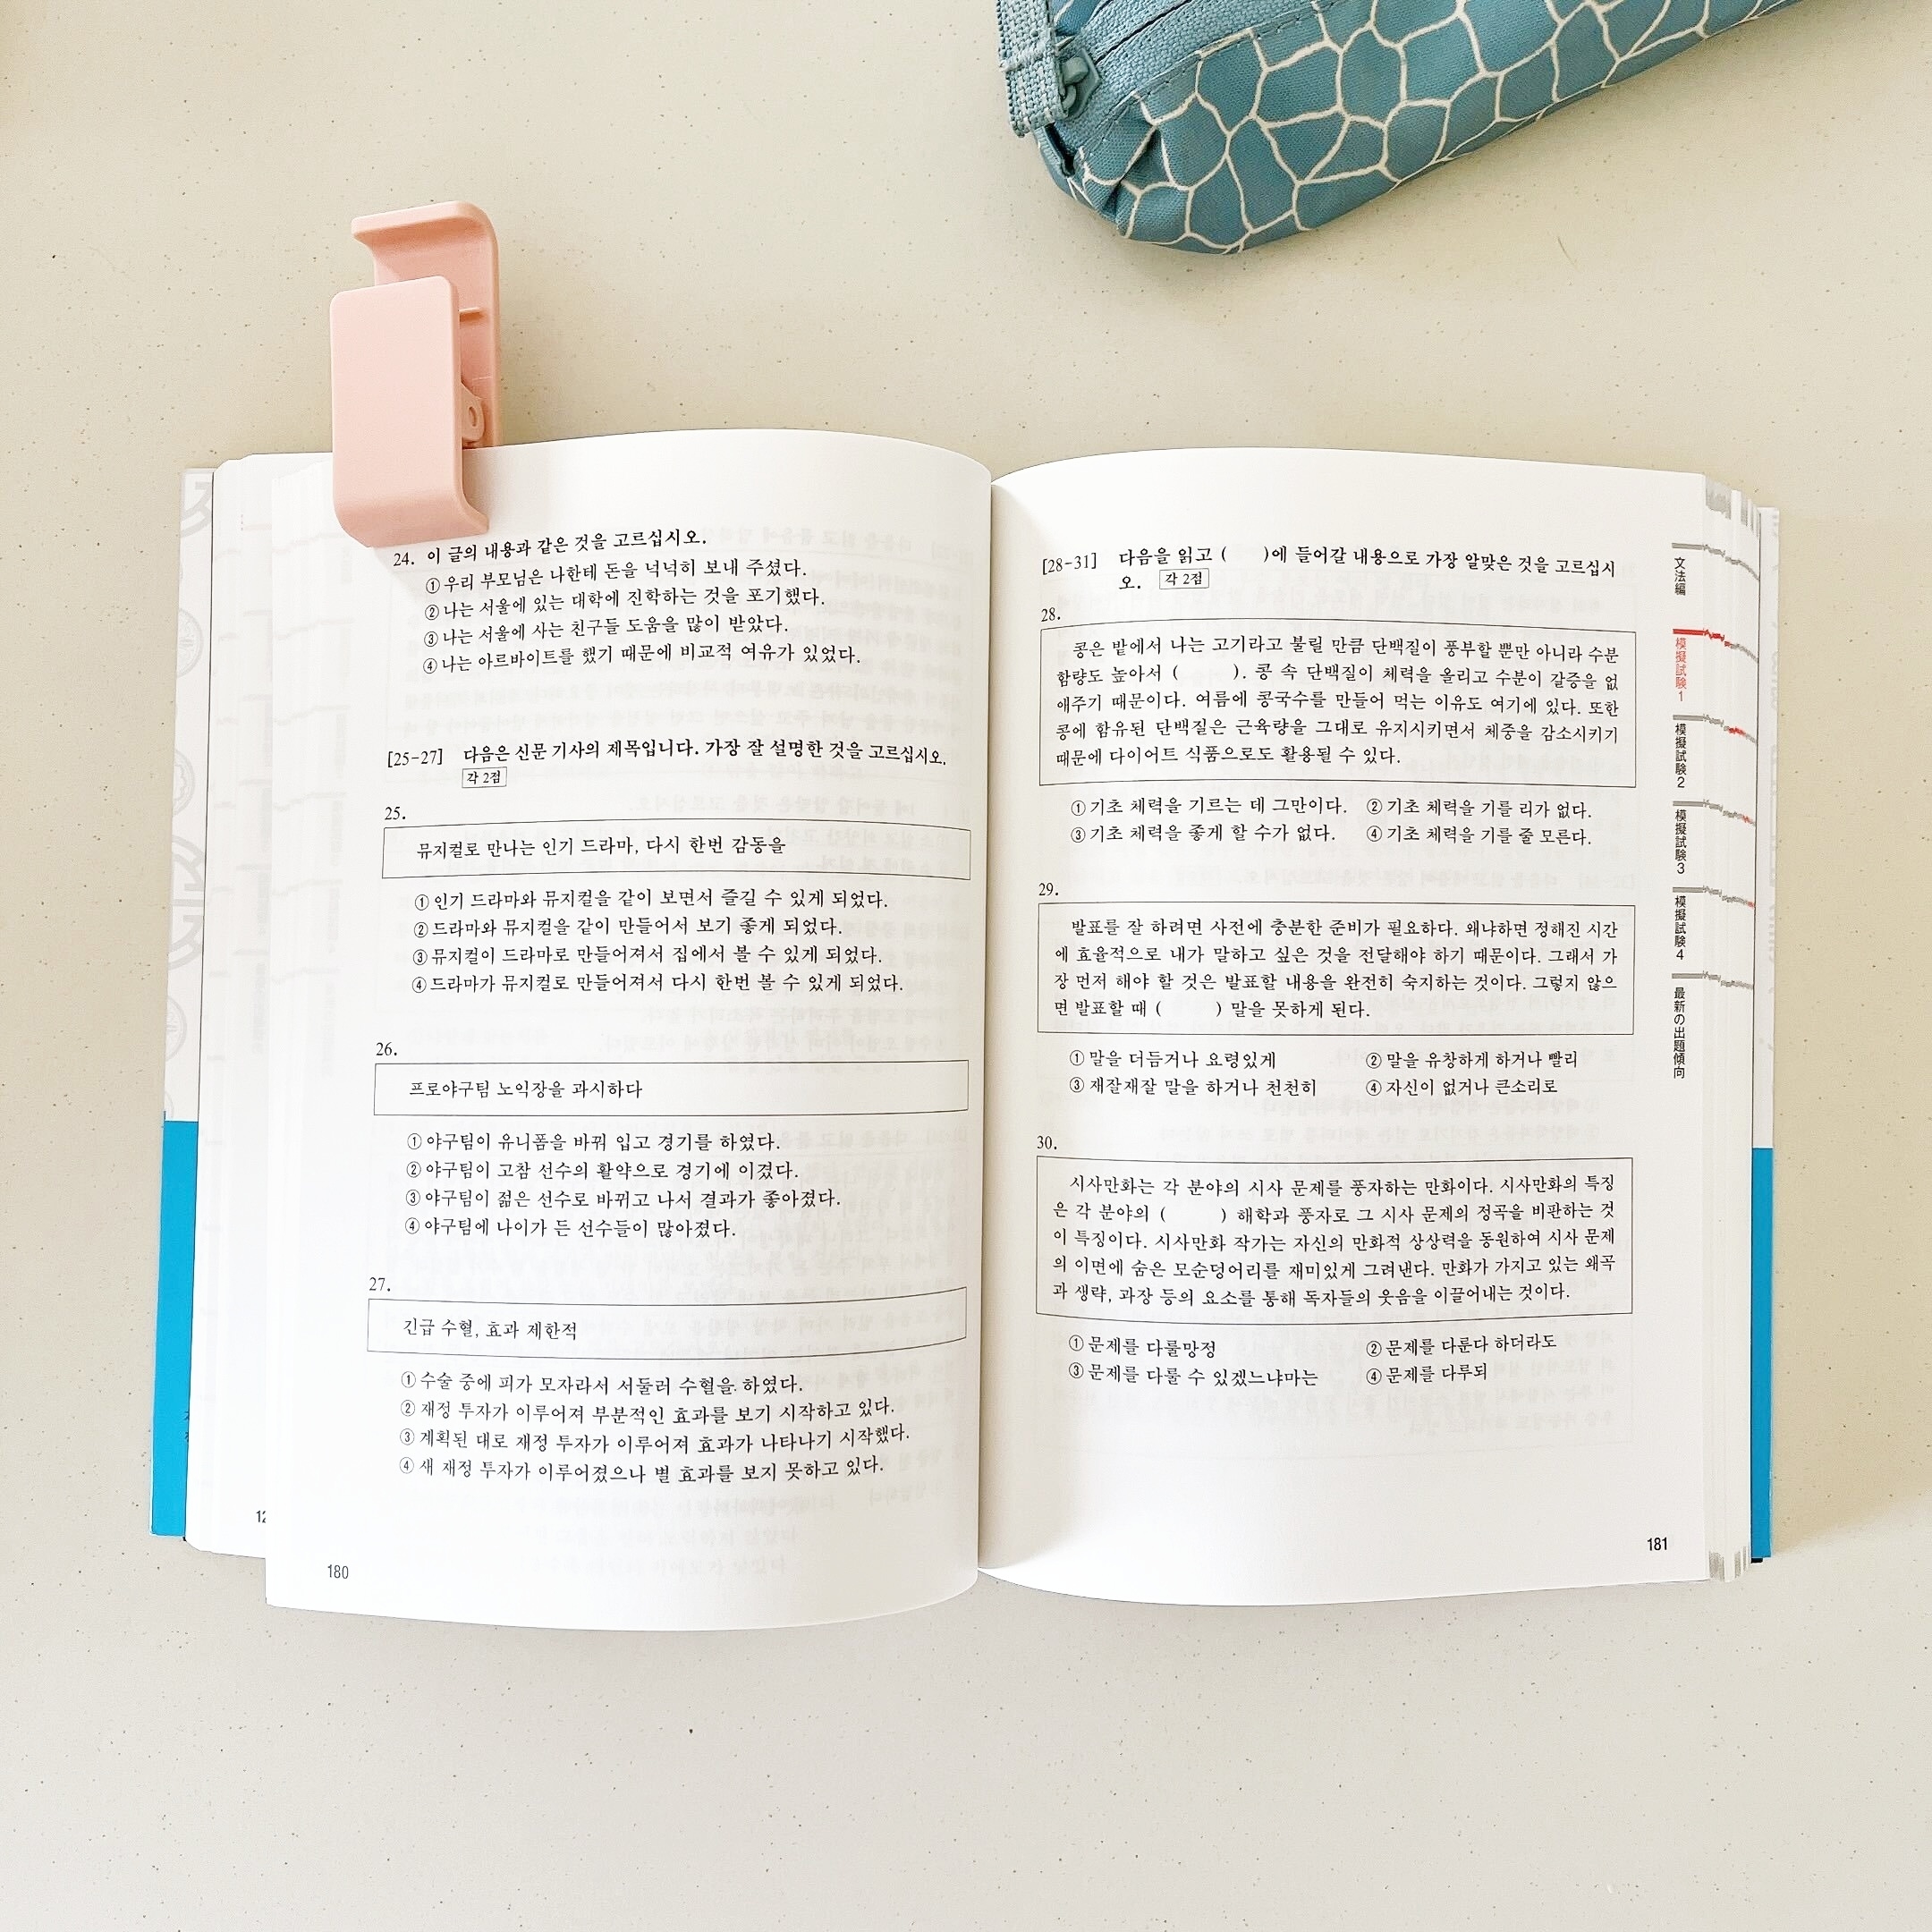 24. 이 글의 내용과 같은 것을 고르십시오.
① 우리 부모님은 나한테 돈을 넉넉히 보내 주셨다.
② 나는 서울에 있는 대학에 진학하는 것을 포기했다.
③ 나는 서울에 사는 친구들 도움을 많이 받았다.
④ 나는 아르바이트를 했기 때문에 비교적 여유가 있었다.
[25-27] 다음은 신문 기사의 제목입니다. 가장 잘 설명한 것을 고르십시오.
각 2점
25.
뮤지컬로 만나는 인기 드라마, 다시 한번 감동을
① 인기 드라마와 뮤지컬을 같이 보면서 즐길 수 있게 되었다.
② 드라마와 뮤지컬을 같이 만들어서 보기 좋게 되었다.
③ 뮤지컬이 드라마로 만들어져서 집에서 볼 수 있게 되었다.
④ 드라마가 뮤지컬로 만들어져서 다시 한번 볼 수 있게 되었다.
26.
프로야구팀 노익장을 과시하다
① 야구팀이 유니폼을 바꿔 입고 경기를 하였다.
② 야구팀이 고참 선수의 활약으로 경기에 이겼다.
③ 야구팀이 젊은 선수로 바뀌고 나서 결과가 좋아졌다.
④ 야구팀에 나이가 든 선수들이 많아졌다.
27.
긴급 수혈, 효과 제한적
① 수술 중에 피가 모자라서 서둘러 수혈을 하였다.
② 재정 투자가 이루어져 부분적인 효과를 보기 시작하고 있다.
③ 계획된 대로 재정 투자가 이루어져 효과가 나타나기 시작했다.
④ 새 재정 투자가 이루어졌으나 별 효과를 보지 못하고 있다.
12
180
[28-31] 다음을 읽고 ( )에 들어갈 내용으로 가장 알맞은 것을 고르십시
오. 각 2점
28.
콩은 밭에서 나는 고기라고 불릴 만큼 단백질이 풍부할 뿐만 아니라 수분
함량도 높아서 ( ). 콩 속 단백질이 체력을 올리고 수분이 갈증을 없
애주기 때문이다. 여름에 콩국수를 만들어 먹는 이유도 여기에 있다. 또한
콩에 함유된 단백질은 근육량을 그대로 유지시키면서 체중을 감소시키기
때문에 다이어트 식품으로도 활용될 수 있다.
① 기초 체력을 기르는 데 그만이다. ② 기초 체력을 기를 리가 없다.
③ 기초 체력을 좋게 할 수가 없다. ④ 기초 체력을 기를 줄 모른다.
29.
발표를 잘 하려면 사전에 충분한 준비가 필요하다. 왜냐하면 정해진 시간
에 효율적으로 내가 말하고 싶은 것을 전달해야 하기 때문이다. 그래서 가
장 먼저 해야 할 것은 발표할 내용을 완전히 숙지하는 것이다. 그렇지 않으
면 발표할 때 ( ) 말을 못하게 된다.
① 말을 더듬거나 요령있게 ② 말을 유창하게 하거나 빨리
③ 재잘재잘 말을 하거나 천천히 ④ 자신이 없거나 큰소리로
30.
시사만화는 각 분야의 시사 문제를 풍자하는 만화이다. 시사만화의 특징
은 각 분야의 ( ) 해학과 풍자로 그 시사 문제의 정곡을 비판하는 것
이 특징이다. 시사만화 작가는 자신의 만화적 상상력을 동원하여 시사 문제
의 이면에 숨은 모순덩어리를 재미있게 그려낸다. 만화가 가지고 있는 왜곡
과 생략, 과장 등의 요소를 통해 독자들의 웃음을 이끌어내는 것이다.
① 문제를 다룰망정 ② 문제를 다룬다 하더라도
③ 문제를 다룰 수 있겠느냐마는 ④ 문제를 다루되
文法編
模擬試験1
模擬試験2
模擬試験3
模擬試験4
最新の出題傾向
181